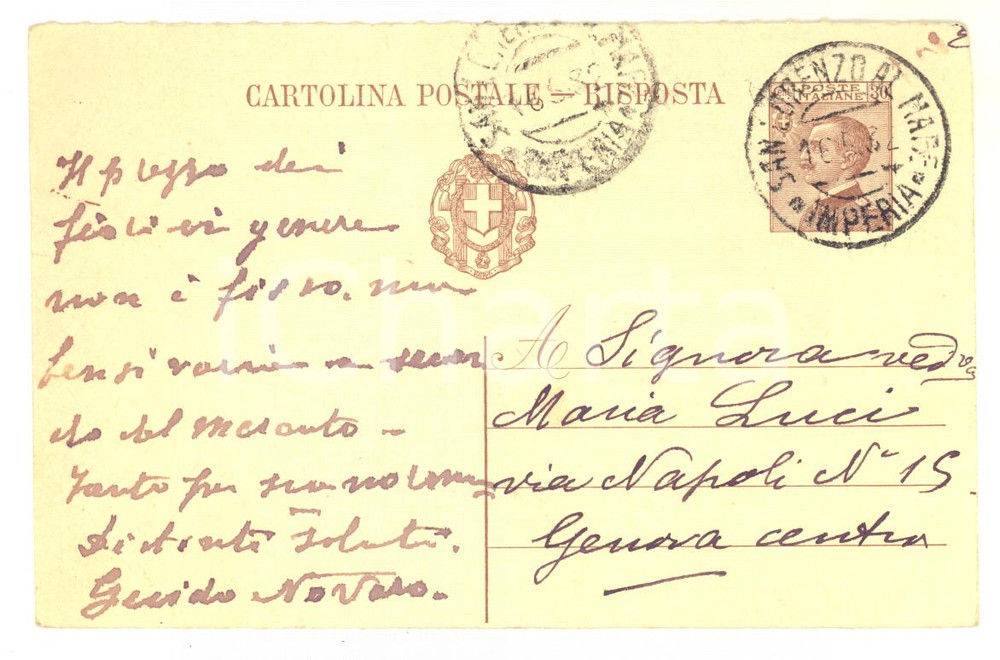 CARTOLINA POSTALE — RISPOSTA
POSTE ITALIANE
30
SAN LORENZO AL MARE
16.5.32
* IMPERIA *
Il prezzo dei
fiori in genere
non è fisso, ma
bensì varia a secon
do del mercato -
Tanto per sua norma
Distinti Saluti.
Guido Novaro.
A Signora ved va
Maria Luci
via Napoli N° 15
Genova centro
iCharta